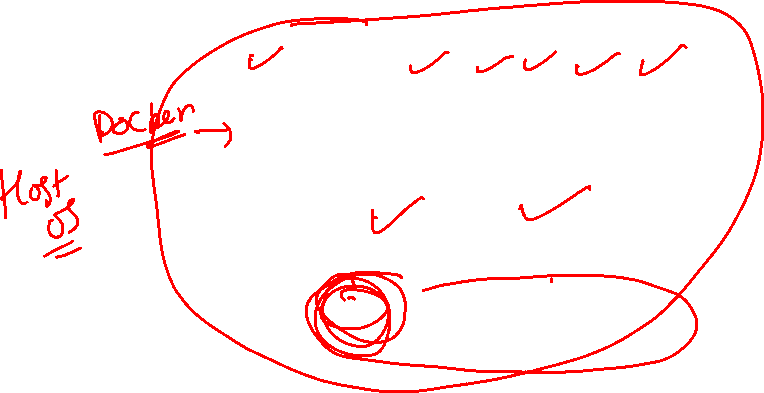 Docker
Host
OS